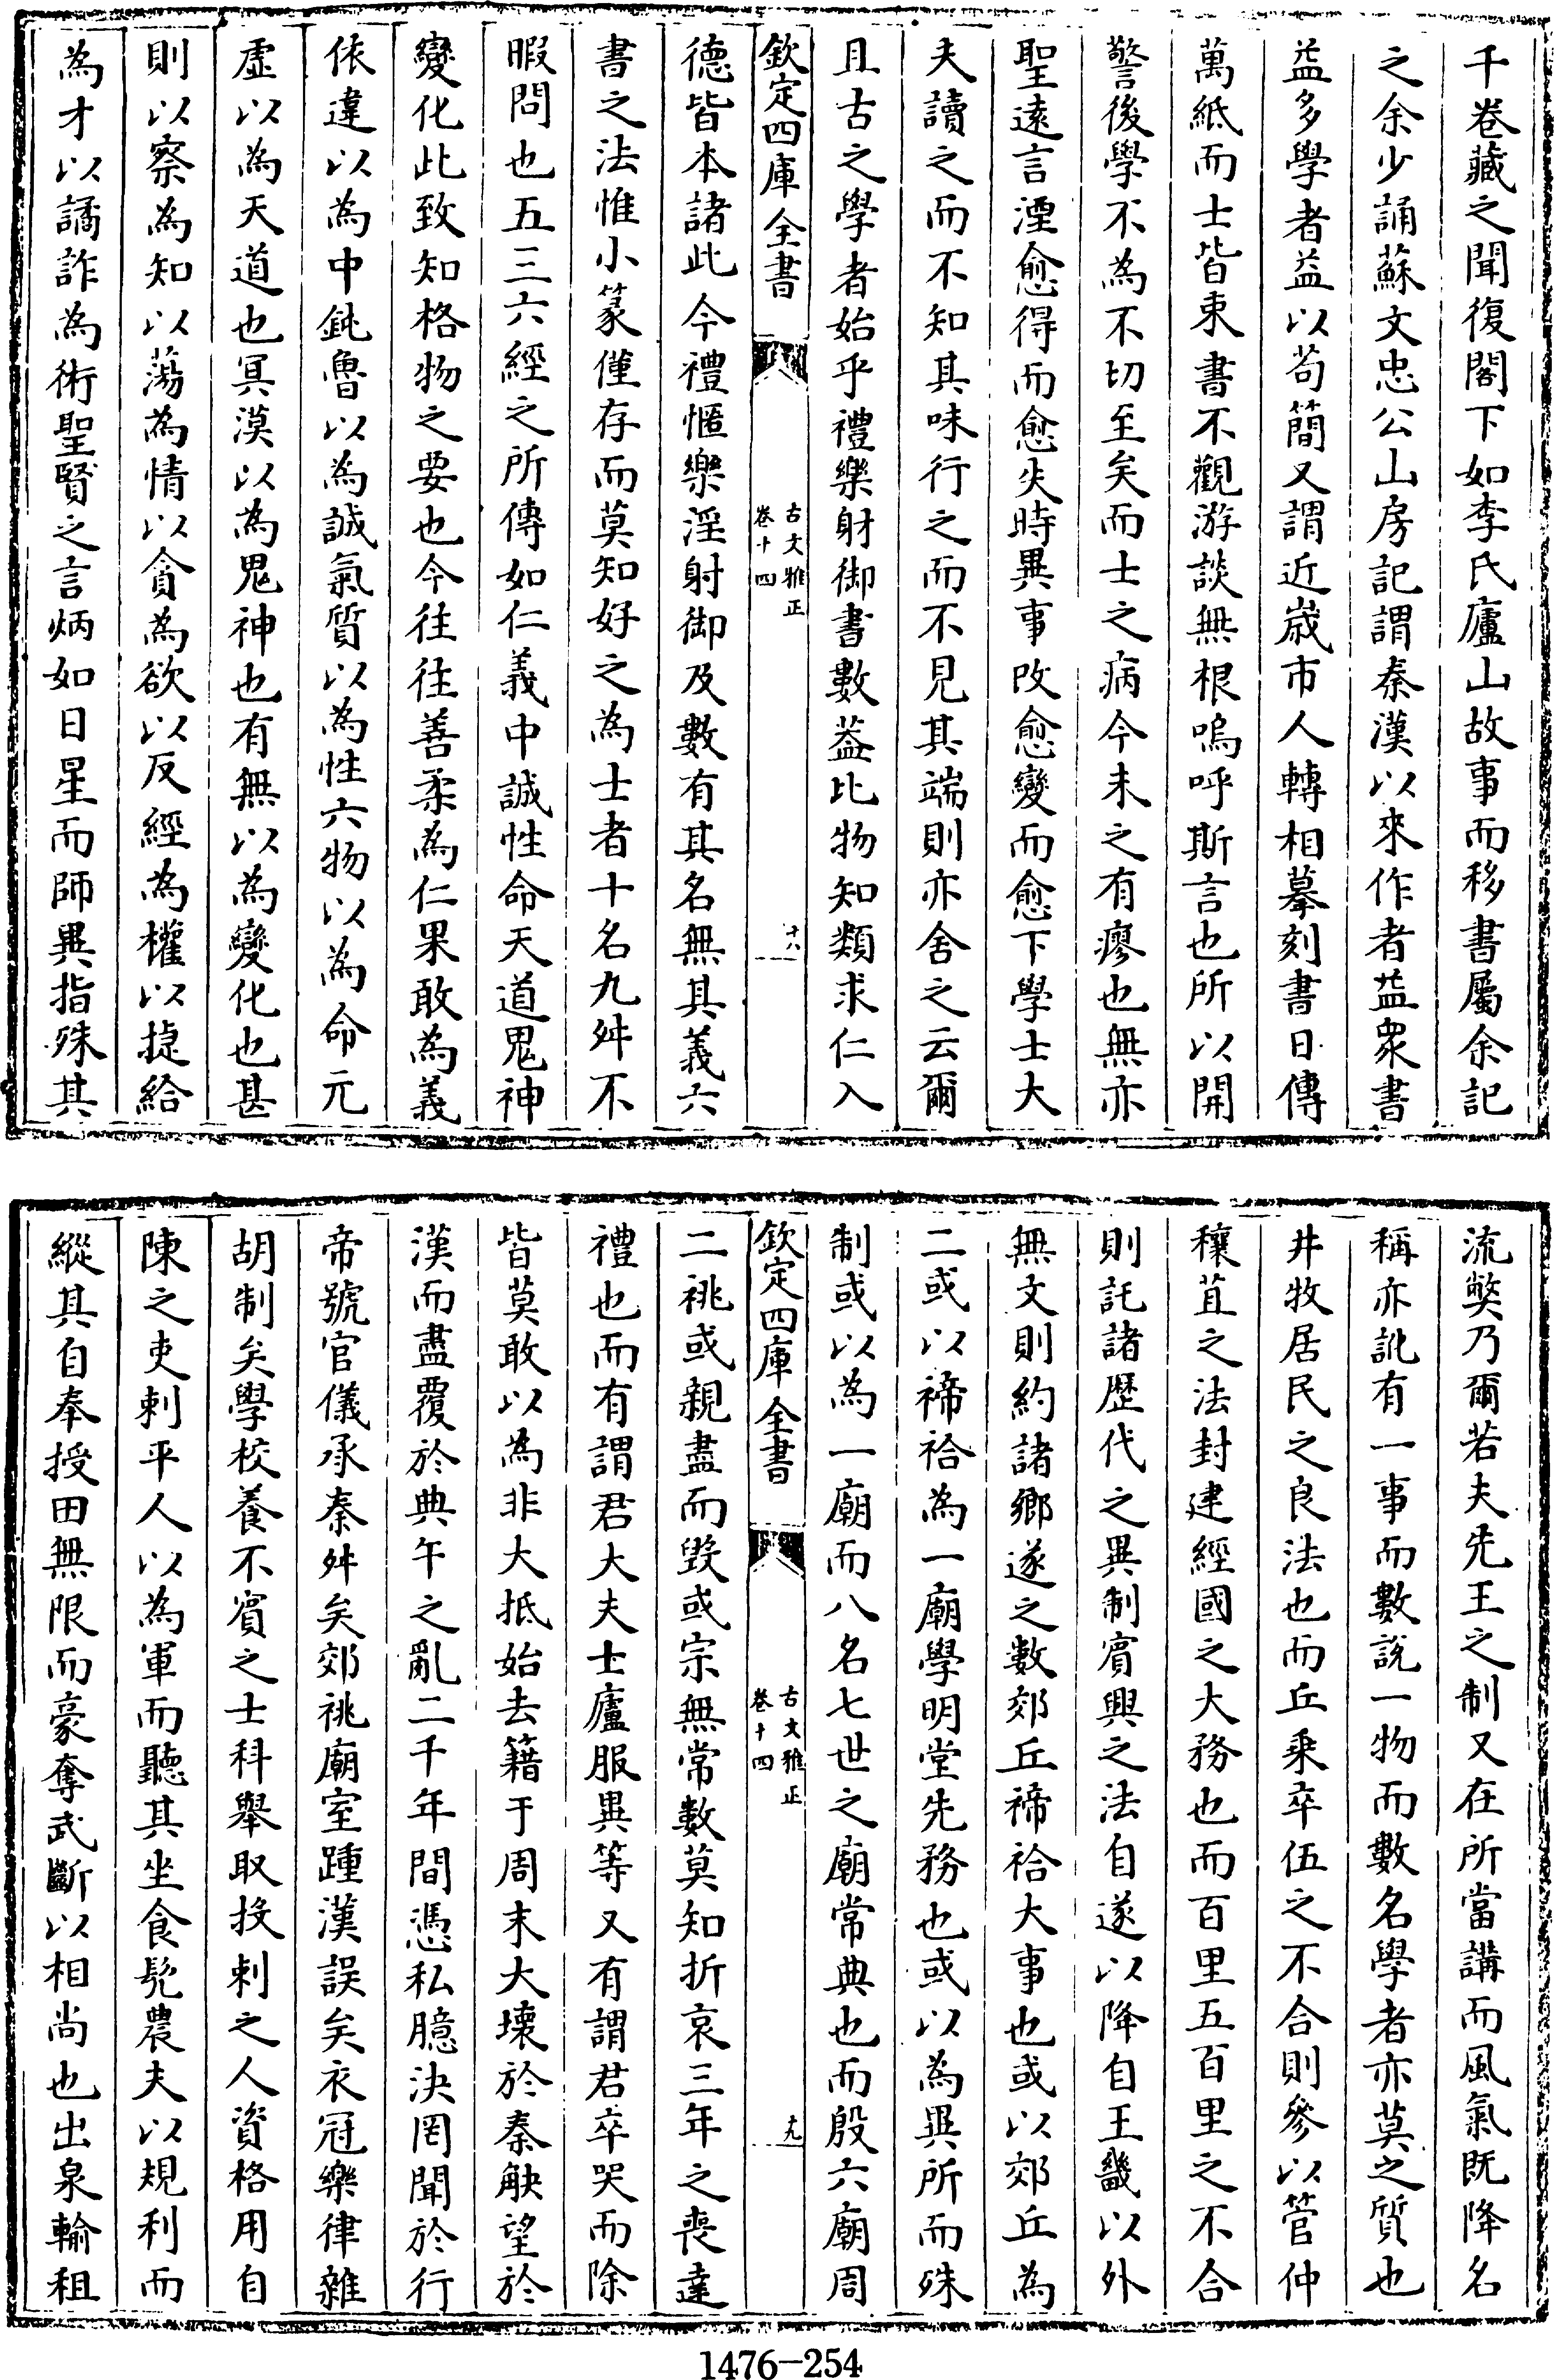 千卷藏之聞復閣下如李氏廬山故事而移書屬余記
之余少誦蘇文忠公山房記謂秦漢以來作者益衆書
益多學者益以苟簡又謂近嵗市人轉相摹刻書日傳
萬紙而士皆束書不觀游談無根嗚呼斯言也所以開
警後學不為不切至矣而士之病今未之有瘳也無亦
聖逺言湮愈得而愈失時異事改愈變而愈下學士大
夫讀之而不知其味行之而不見其端則亦舍之云爾
且古之學者始乎禮樂射御書數葢比物知類求仁入
欽定四庫全書
古文雅正
卷十四
十八
德皆本諸此今禮慝樂淫射御及數有其名無其義六
書之法惟小篆僅存而莫知好之為士者十名九舛不
暇問也五三六經之所傳如仁義中誠性命天道鬼神
變化此致知格物之要也今往往善柔為仁果敢為義
依違以為中鈍魯以為誠氣質以為性六物以為命元
虛以為天道也冥漠以為鬼神也有無以為變化也甚
則以察為知以蕩為情以貪為欲以反經為權以捷給
為才以譎詐為術聖賢之言炳如日星而師異指殊其
流獘乃爾若夫先王之制又在所當講而風氣旣降名
稱亦訛有一事而數說一物而數名學者亦莫之質也
井牧居民之良法也而丘乘卒伍之不合則參以管仲
穰苴之法封建經國之大務也而百里五百里之不合
則託諸歴代之異制賓興之法自遂以降自王畿以外
無文則約諸鄉遂之數郊丘禘祫大事也或以郊丘為
二或以禘祫為一廟學明堂先務也或以為異所而殊
制或以為一廟而八名七世之廟常典也而殷六廟周
欽定四庫全書
古文雅正
卷十四
十九
二祧或親盡而毀或宗無常數莫知折哀三年之喪達
禮也而有謂君大夫士廬服異等又有謂君卒哭而除
皆莫敢以為非大抵始去籍于周末大壞於秦觖望於
漢而盡覆於典午之亂二千年間憑私臆決罔聞於行
帝號官儀承秦舛矣郊祧廟室踵漢誤矣衣冠樂律雜
胡制矣學校養不賓之士科舉取投刺之人資格用自
陳之吏刺平人以為軍而聽其坐食髡農夫以規利而
縱其自奉授田無限而豪奪武斷以相尚也出泉輸租
1476-254